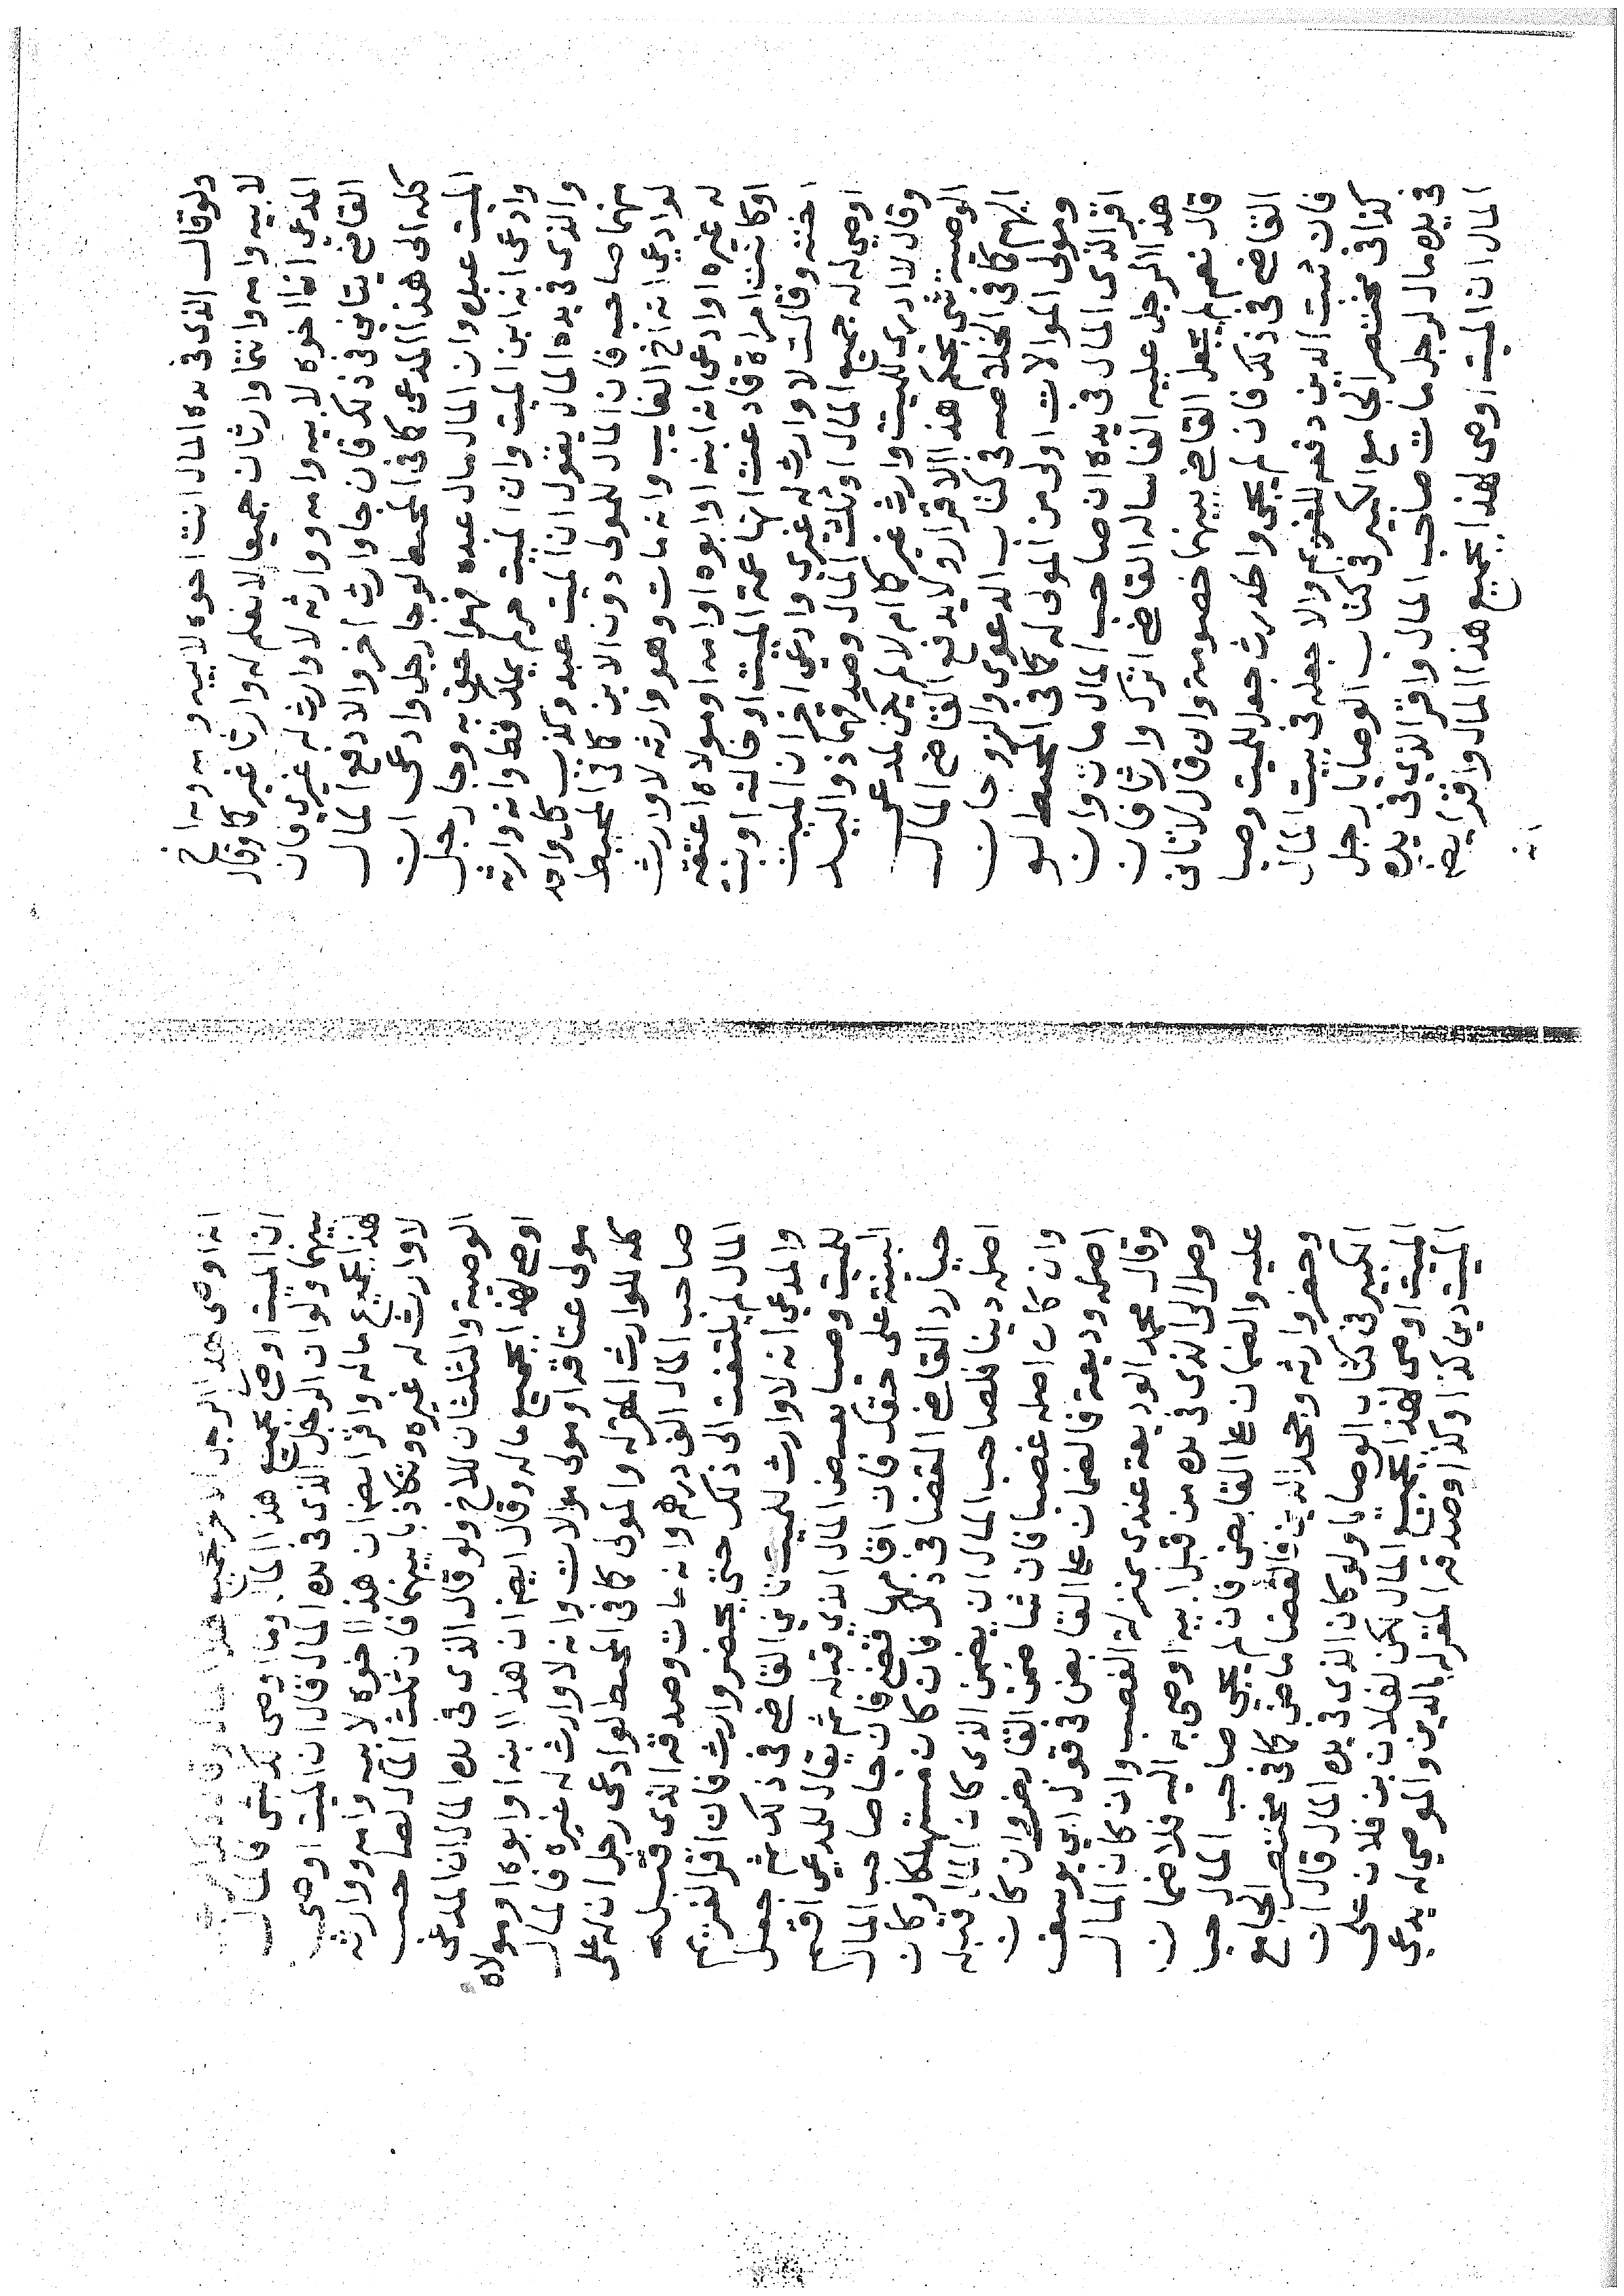 ولوقال الذى فى يده المال انت اخوه لابيه و به وبه اخ
لابيه وامه وانتما وارثان جميعا لا نعلم له وارثا غير كما وقال
المدعى انا اخوه لابيه وامه ووارثه لا وارث له غيرى فان
القاضى يتانى فى ذلك فان جا وارث اخر والا دفع المال
كله الى هذا المدعى كما فى المحيط لوجا رجل وادعى ان
الميت عبده وان المال مال عبده فهو احق به وجا رجل
وادعى انه ابن الميت وان الميت حر لم يملك قط وانه وارثه
والذى فى يده المال يقول ان الميت عبد وكذب كل واحد
منهما صاحبه فان المال للمولى دون الابن كما فى المحيط
لوادعى انه اخ الغايب وانه مات وهو وارثه لا وارث
له غيره او ادعى انه ابنه او ابوه او امه او مولاه اعتقه
او كانت امراة فادعت انها عمة الميت او خالته او بنت
اخته وقالت لا وارث له غيرى وادعى اخر ان الميت
اوصى له جميع المال او ثلث المال وصدقهما ذو اليد
وقال لا ادرى للميت وارث غير كما ام لا لم يكن لمدعى
الوصيه شى بحكم هذا الاقرار ولا يدفع القاضى المال
اليهم كما فى الخلاصه فى كتاب الدعوى والزوجان
ومولى الموالات اولى من المولى له كما فى المحيط لو
اقر الذى المال فى يده ان صاحب المال مات وان
هذا الرجل عليه الفا ساله القاضى اترك وارثا فان
قال نعم لم يجعل القاضى بينهما خصومة وان قال لا تانى
القاضى فى ذلك فان لم يجى واحد رث جعل للميت وصيا
فان ثبت الدين دفعه للغريم والا جعله فى بيت المال
كذا فى مختصر الجامع الكبير فى كتاب الوصايا رجل
فى يده مال لرجل مات صاحب المال واقر الذى فى يده
المال ان الميت اوصى لهذا بجميع هذا المال واقر ايضا
انه
انه اوصى هذا الرجل الاخر بجميع هذا المال
ان الميت اوصى بجميع هذا المال وما اوصى لك بشى فالمال
بينهما ولو ان الرجل الذى فى يده المال قال ان الميت اوصى
هذا بجميع ماله واقر ايضا ان هذا اخوه لابيه وامه ووارثه
لا وارث له غيره وتكاذبا بينهما فان ثلث المال لصاحب
الوصية والثلثان للاخ ولو قال الذى فى يده المال ان المدعى
اوصى لهذا بجميع ماله وقال ايضا ان هذا ابنه او ابوه او مولاه
مولى عتاقه او مولى موالات وانه لا وارث له غيره فالمال
كله للوارث المقر له والمولى كما فى المحيط لوادعى رجل ان له على
صاحب المال الف درهم وانه مات وصدقه الذى قبله
المال لم يلتفت الى ذلك حتى يحضر وارث فان اقر الغريم
والمدعى انه لا وارث للميت تانى القاضى فى ذلك ثم جعل
للميت وصيا بعض المال الذى قبله ثم يقال للمدعى اقم
البينة على حقك فان اقامها قضى فان جا صاحب المال
حيا رد القاضى القضا فى ذلك فان كان مستهلكا وكان
اصله دينا فلصاحب المال ان يضمن الذى كان المال قبله
وان كان اصله غصبا فان شا ضمن القابض وان كان
اصله وديعة فالضمان على القابض فى قول ابى يوسف
وقال محمد الوديعة عندى بمنزلة الغصب وان كان المال
وصل الى الذى فى يده من قبل ابيه اوصى به اليه فلا ضمان
عليه والضمان على القابض فان لم يجى صاحب المال حيا
وحضر وارثه وجحد الدين فالقضا ماض كما فى مختصر الجامع
الكبير فى كتاب الوصايا ولو كان الذى فى يده المال قال ان
الميت اوصى لهذا بجميع المال لكن لفلان بن فلان على
الميت دين كذا وكذا وصدقه المقر له بالدين والموصى له يدعى